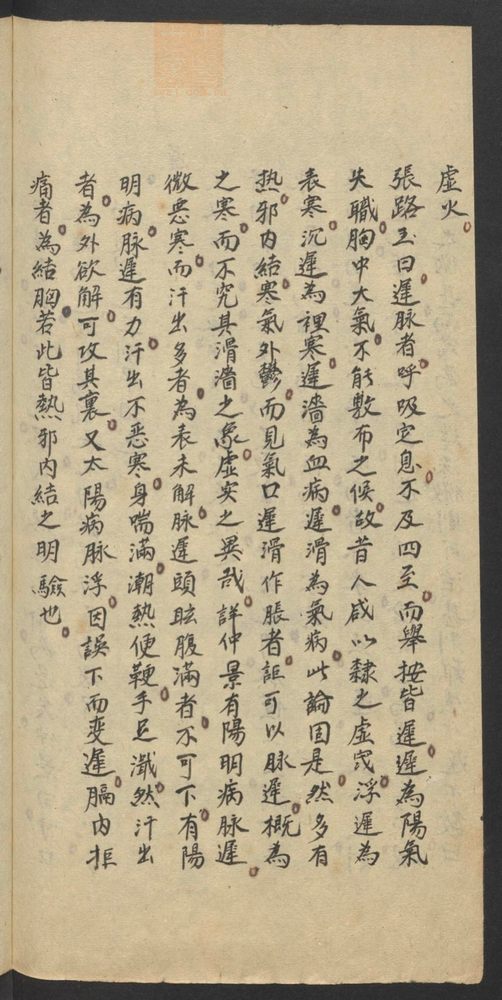 虛火
張路玉曰遲脉者呼吸定息不及四至而舉按皆遲遲為陽氣
失職胸中大氣不能敷布之候故昔人咸以隸之虛寒浮遲為
表寒沉遲為裡寒遲濇為血病遲滑為氣病此論固是然多有
热邪内結寒氣外鬱而見氣口遲滑作脹者詎可以脉遲概為
之寒而不究其滑濇之象虛实之異哉詳仲景有陽明病脉遲
微惡寒而汗出多者為表未解脉遲頭眩腹滿者不可下有陽
明病脉遲有力汗出不惡寒身喘滿潮熱便鞕手足濈然汗出
者為外欲解可攻其裏又太陽病脉浮因誤下而变遲膈内拒
痛者為結胸若此皆熱邪内結之明驗也